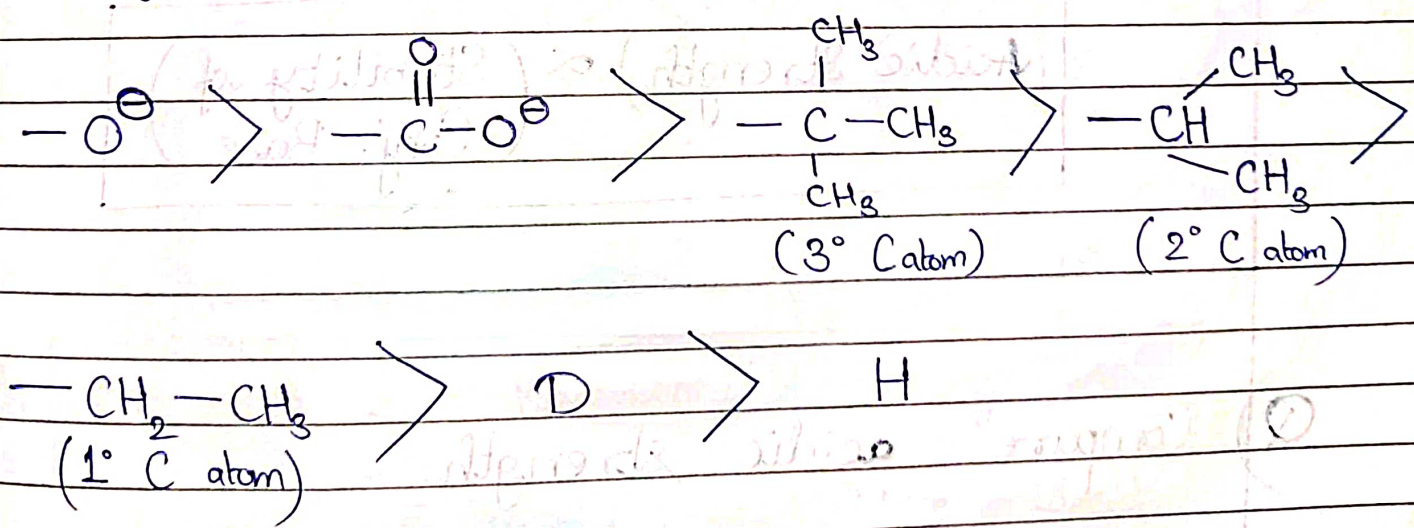 CH₃
O
||
|
—O⊖ > —C—O⊖ > —C—CH₃ > —CH—CH₃ >
|
CH₃
CH₃
(3° C atom) (2° C atom)
—CH₂—CH₃ > D > H
(1° C atom)